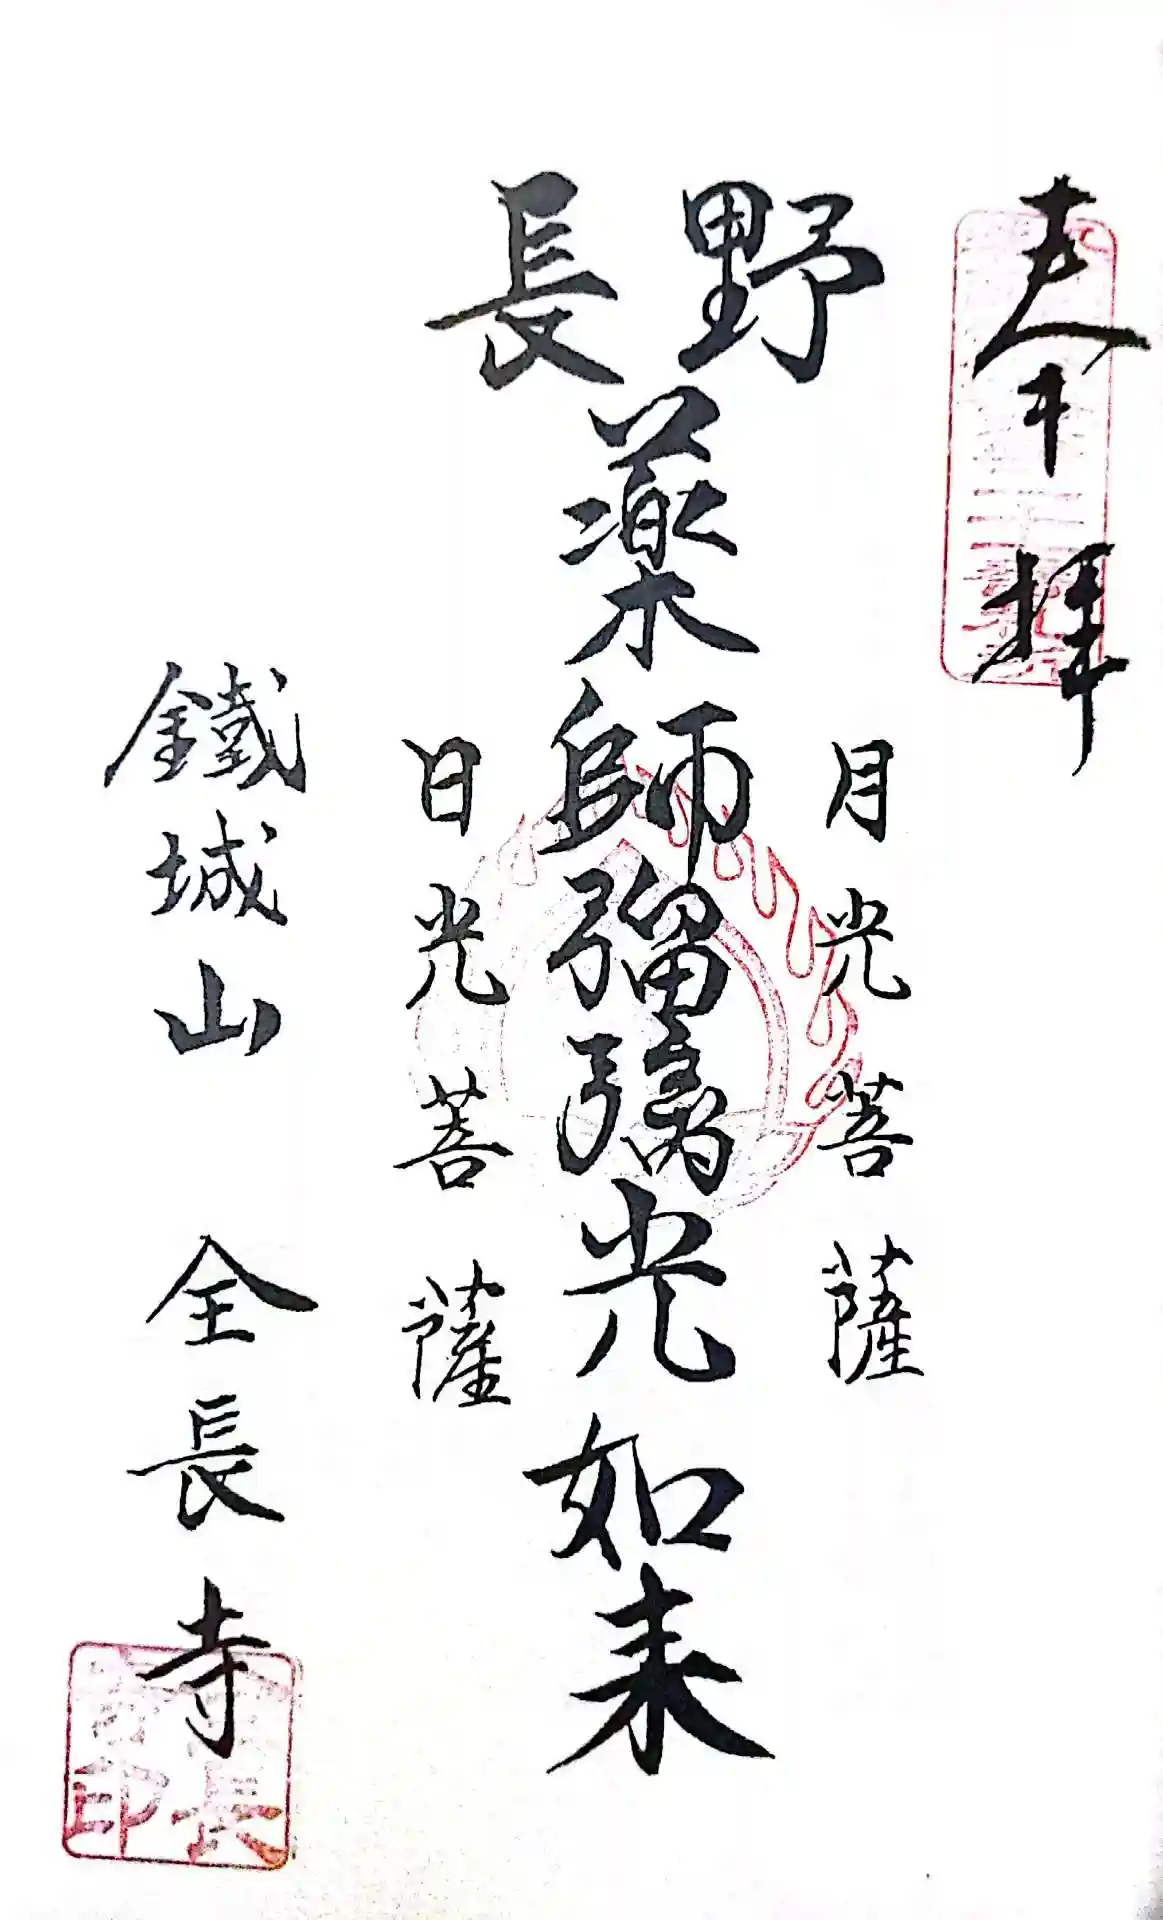 奉拝
月光菩薩
長野
薬師瑠璃光如来
日光菩薩
鐵城山 全長寺
全長寺印